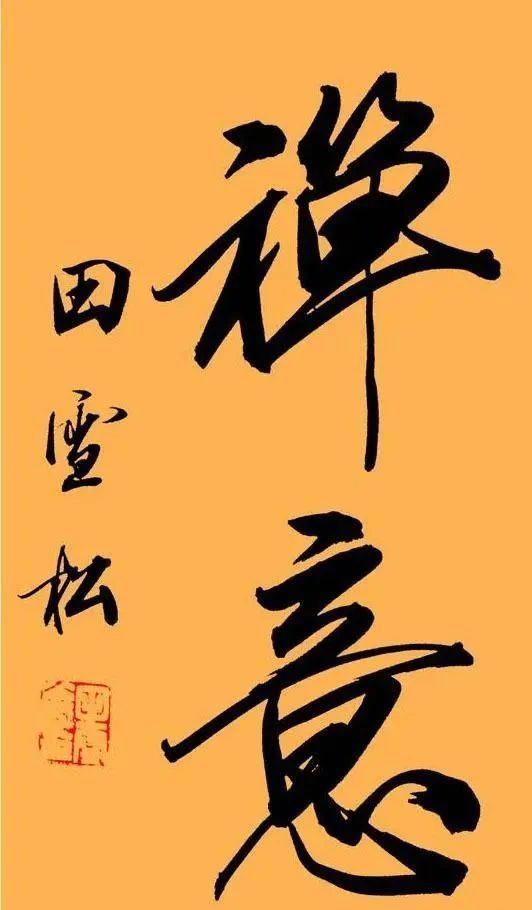 禪意
田雪松